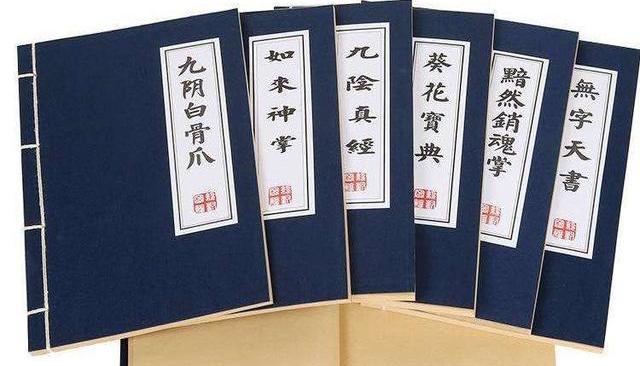 九阴白骨爪
如來神掌
九陰真經
葵花寶典
黯然銷魂掌
無字天書